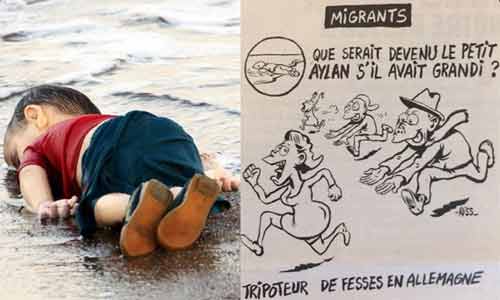 MIGRANTS
QUE SERAIT DEVENU LE PETIT
AYLAN S'IL AVAIT GRANDI ?
RISS
TRIPOTEUR DE FESSES EN ALLEMAGNE